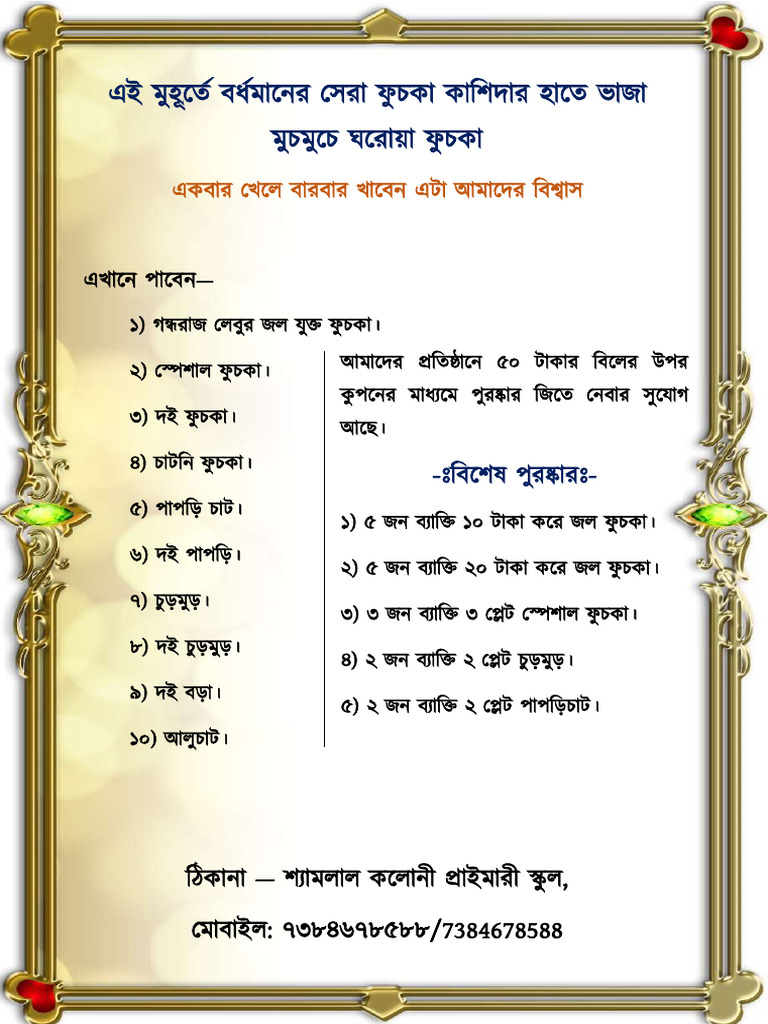 এই মুহূর্তে বর্ধমানের সেরা ফুচকা কাশিদার হাতে ভাজা
মুচমুচে ঘরোয়া ফুচকা
একবার খেলে বারবার খাবেন এটা আমাদের বিশ্বাস
এখানে পাবেন—
১) গন্ধরাজ লেবুর জল যুক্ত ফুচকা।
২) স্পেশাল ফুচকা।
৩) দই ফুচকা।
৪) চাটনি ফুচকা।
৫) পাপড়ি চাট।
৬) দই পাপড়ি।
৭) চুড়মুড়।
৮) দই চুড়মুড়।
৯) দই বড়া।
১০) আলুচাট।
আমাদের প্রতিষ্ঠানে ৫০ টাকার বিলের উপর
কুপনের মাধ্যমে পুরষ্কার জিতে নেবার সুযোগ
আছে।
-ঃবিশেষ পুরষ্কারঃ-
১) ৫ জন ব্যাক্তি ১০ টাকা করে জল ফুচকা।
২) ৫ জন ব্যাক্তি ২০ টাকা করে জল ফুচকা।
৩) ৩ জন ব্যাক্তি ৩ প্লেট স্পেশাল ফুচকা।
৪) ২ জন ব্যাক্তি ২ প্লেট চুড়মুড়।
৫) ২ জন ব্যাক্তি ২ প্লেট পাপড়িচাট।
ঠিকানা — শ্যামলাল কলোনী প্রাইমারী স্কুল,
মোবাইল: ৭৩৮৪৬৭৮৫৮৮/7384678588